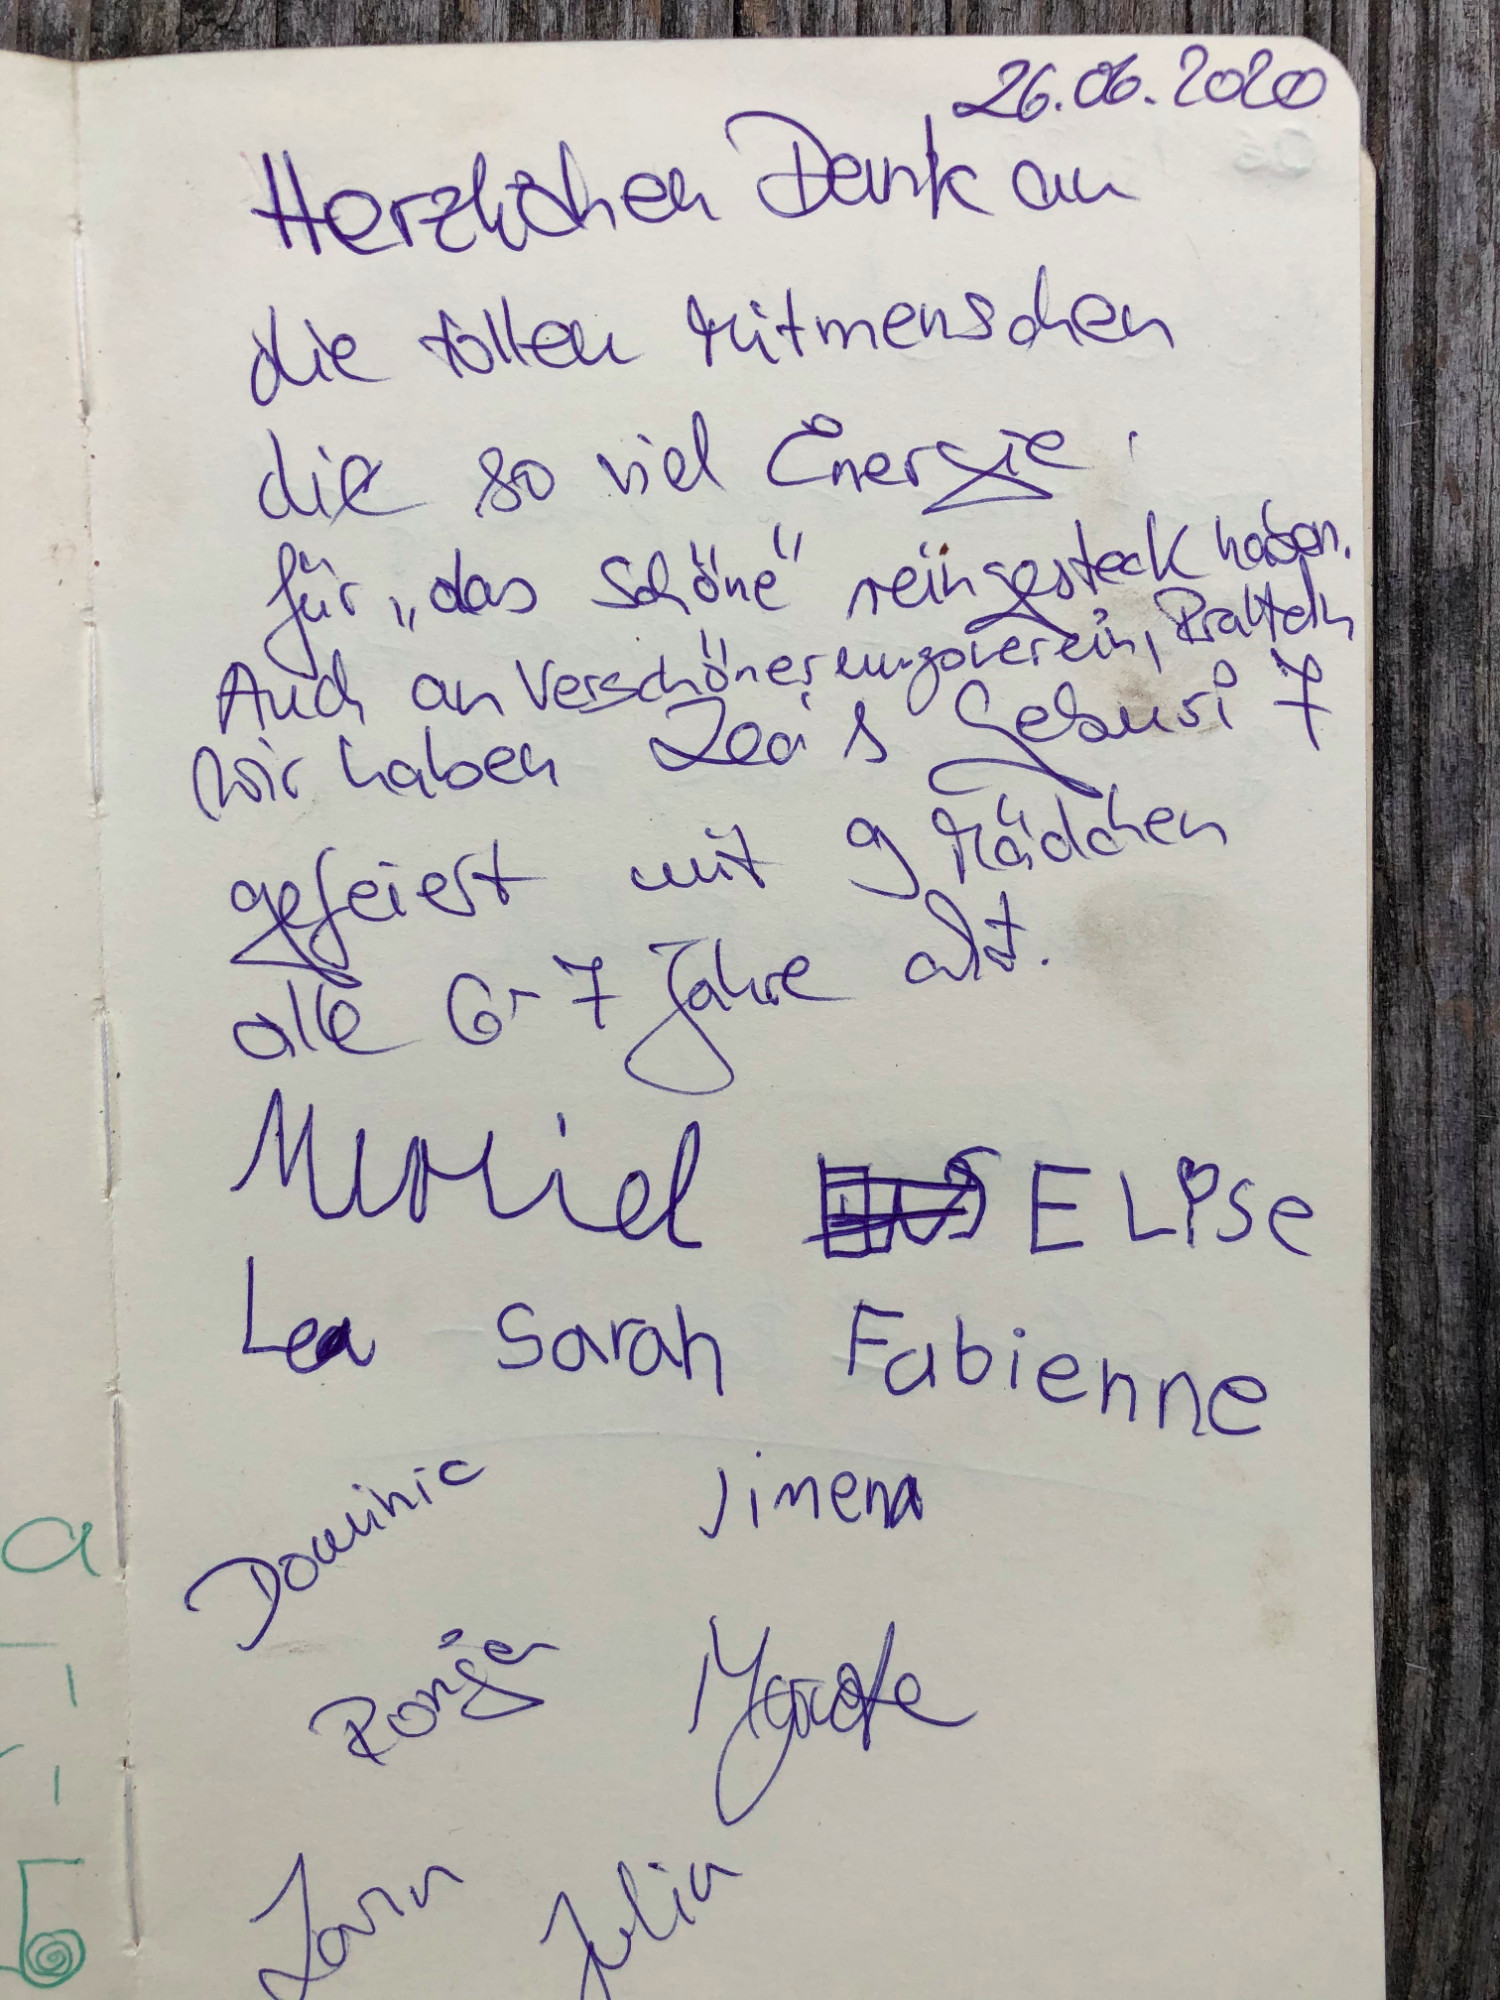 26.06.2020
Herzlichen Dank an
die tollen Mitmenschen
die so viel Energie
für „das Schöne" reingesteck haben.
Auch an Verschönerungsverein, Pratteln
Wir haben Lea's Geburi 7
gefeiert mit 9 Mädchen
alle 6-7 Jahre alt.
Muriel ELiSe
Lea Sarah Fabienne
Dominic Jimena
Ronja
Julia
a